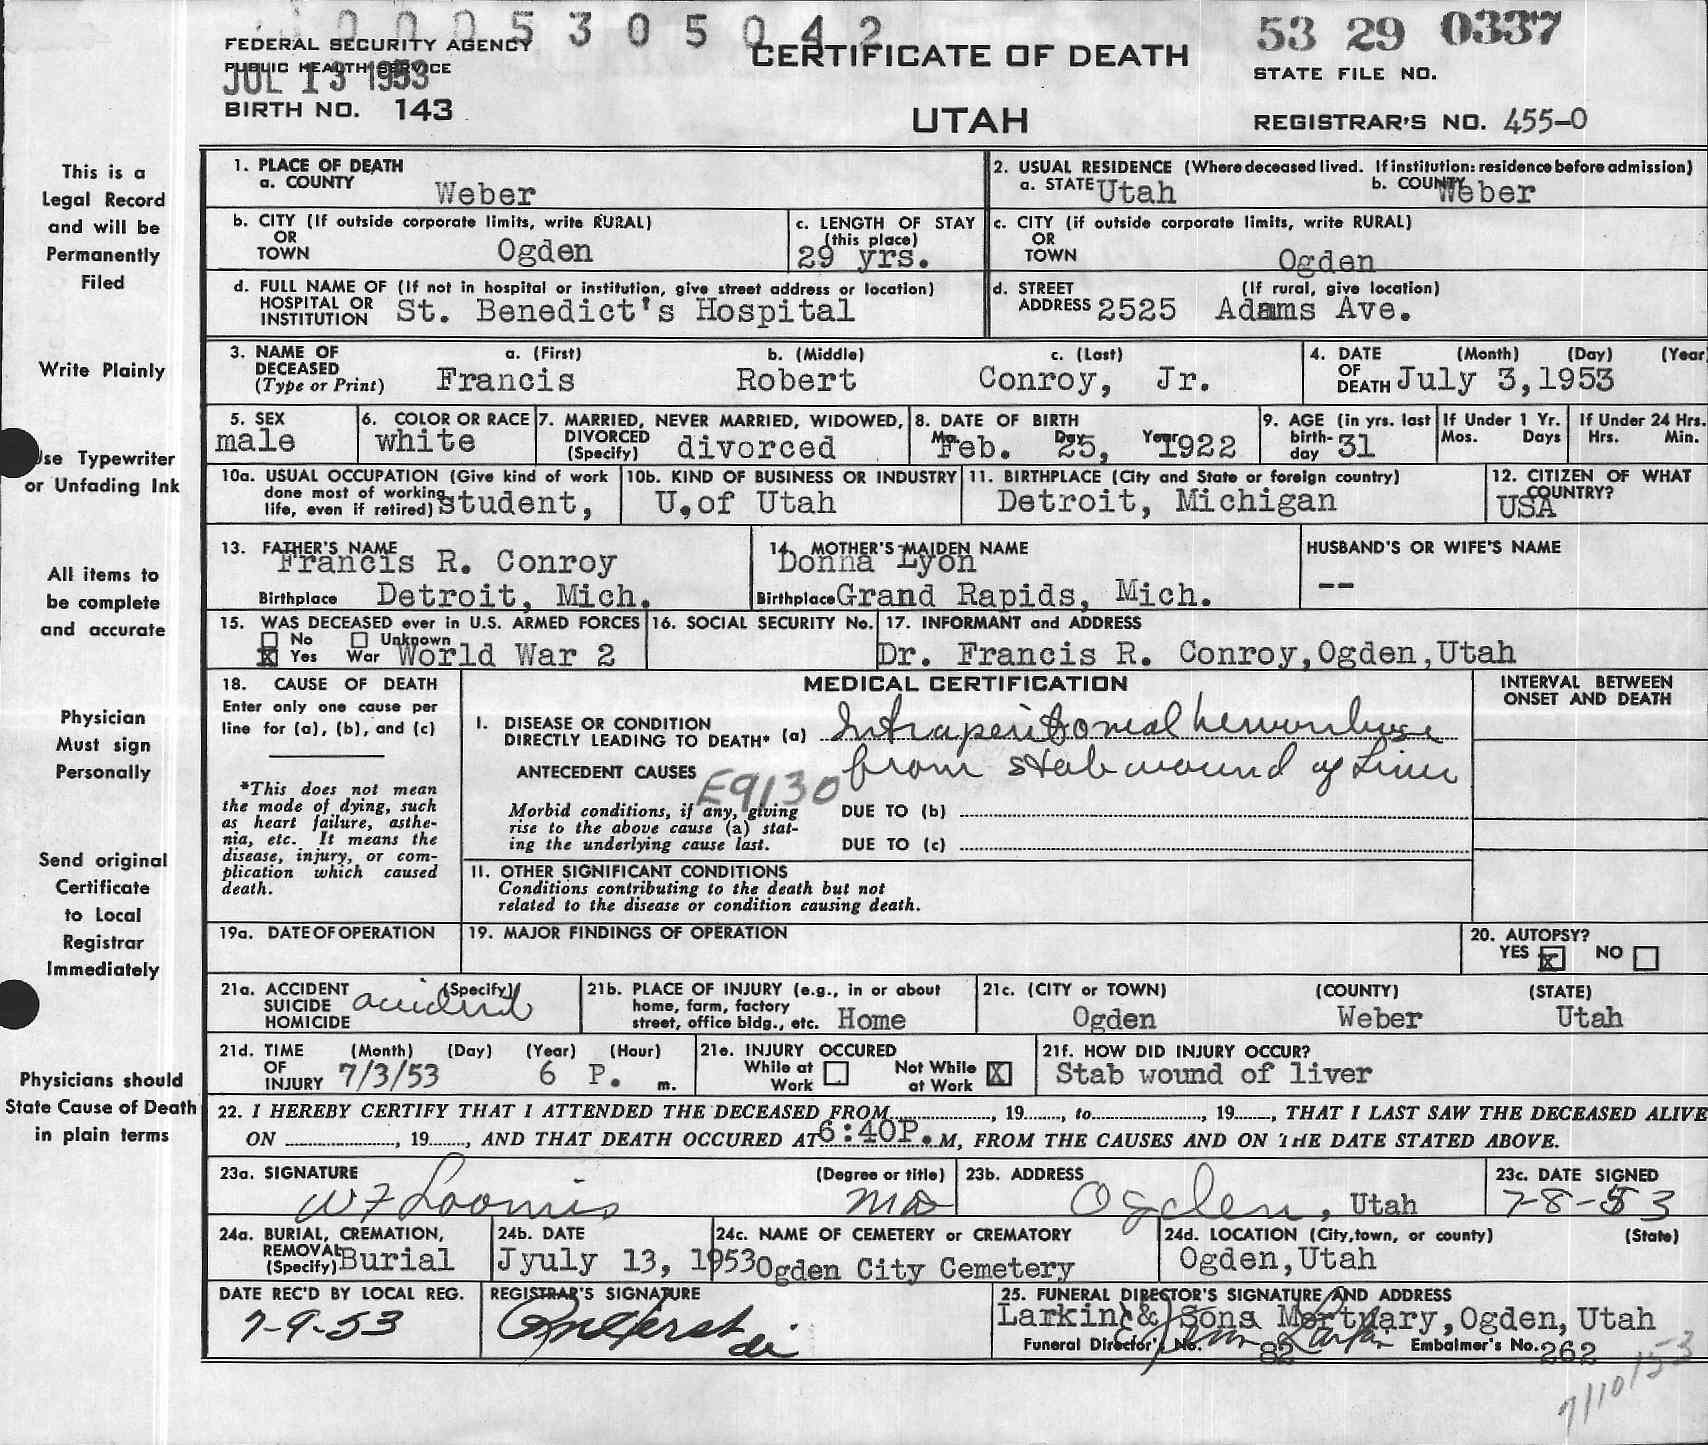 1 0 0 0 5 3 0 5 0 4 2
53 29 0337
FEDERAL SECURITY AGENCY
PUBLIC HEALTH SERVICE
JUL 13 1953
CERTIFICATE OF DEATH
STATE FILE NO.
BIRTH NO. 143
UTAH
REGISTRAR'S NO. 455-0
This is a
Legal Record
and will be
Permanently
Filed
Write Plainly
Use Typewriter
or Unfading Ink
All items to
be complete
and accurate
Physician
Must sign
Personally
Send original
Certificate
to Local
Registrar
Immediately
Physicians should
State Cause of Death
in plain terms
1. PLACE OF DEATH
a. COUNTY Weber
2. USUAL RESIDENCE (Where deceased lived. If institution: residence before admission)
a. STATE Utah b. COUNTY Weber
b. CITY (If outside corporate limits, write RURAL)
OR
TOWN Ogden
c. LENGTH OF STAY
(this place)
29 yrs.
c. CITY (if outside corporate limits, write RURAL)
OR
TOWN Ogden
d. FULL NAME OF (If not in hospital or institution, give street address or location)
HOSPITAL OR
INSTITUTION St. Benedict's Hospital
d. STREET (If rural, give location)
ADDRESS 2525 Adams Ave.
3. NAME OF a. (First) b. (Middle) c. (Last)
DECEASED
(Type or Print) Francis Robert Conroy, Jr.
4. DATE (Month) (Day) (Year
OF
DEATH July 3,1953
5. SEX
male
6. COLOR OR RACE
white
7. MARRIED, NEVER MARRIED, WIDOWED,
DIVORCED
(Specify) divorced
8. DATE OF BIRTH
Mo. Day Year
Feb. 25, 1922
9. AGE (in yrs. last
birth-
day 31
If Under 1 Yr.
Mos. Days
If Under 24 Hrs.
Hrs. Min.
10a. USUAL OCCUPATION (Give kind of work
done most of working
life, even if retired) student,
10b. KIND OF BUSINESS OR INDUSTRY
U.of Utah
11. BIRTHPLACE (City and State or foreign country)
Detroit, Michigan
12. CITIZEN OF WHAT
COUNTRY?
USA
13. FATHER'S NAME
Francis R. Conroy
Birthplace Detroit, Mich.
14. MOTHER'S MAIDEN NAME
Donna Lyon
Birthplace Grand Rapids, Mich.
HUSBAND'S OR WIFE'S NAME
--
15. WAS DECEASED ever in U.S. ARMED FORCES
No Unknown
X Yes War World War 2
16. SOCIAL SECURITY No.
17. INFORMANT and ADDRESS
Dr. Francis R. Conroy,Ogden,Utah
18. CAUSE OF DEATH
Enter only one cause per
line for (a), (b), and (c)
*This does not mean
the mode of dying, such
as heart failure, asthe-
nia, etc. It means the
disease, injury, or com-
plication which caused
death.
MEDICAL CERTIFICATION
INTERVAL BETWEEN
ONSET AND DEATH
I. DISEASE OR CONDITION
DIRECTLY LEADING TO DEATH* (a) Intraperitoneal hemorrhage
from stab wound of Liver
ANTECEDENT CAUSES
E9130
Morbid conditions, if any, giving
rise to the above cause (a) stat-
ing the underlying cause last.
DUE TO (b)
DUE TO (c)
II. OTHER SIGNIFICANT CONDITIONS
Conditions contributing to the death but not
related to the disease or condition causing death.
19a. DATE OF OPERATION
19. MAJOR FINDINGS OF OPERATION
20. AUTOPSY?
YES X NO
21a. ACCIDENT (Specify)
SUICIDE
HOMICIDE
accident
21b. PLACE OF INJURY (e.g., in or about
home, farm, factory
street, office bldg., etc. Home
21c. (CITY or TOWN) (COUNTY) (STATE)
Ogden Weber Utah
21d. TIME (Month) (Day) (Year) (Hour)
OF
INJURY 7/3/53 6 P. m.
21e. INJURY OCCURED
While at Not While
Work at Work X
21f. HOW DID INJURY OCCUR?
Stab wound of liver
22. I HEREBY CERTIFY THAT I ATTENDED THE DECEASED FROM, 19, to, 19, THAT I LAST SAW THE DECEASED ALIVE
ON, 19, AND THAT DEATH OCCURED AT 6:40P.M, FROM THE CAUSES AND ON THE DATE STATED ABOVE.
23a. SIGNATURE (Degree or title)
W F Loomis MD
23b. ADDRESS
Ogden, Utah
23c. DATE SIGNED
7-8-53
24a. BURIAL, CREMATION,
REMOVAL
(Specify) Burial
24b. DATE
Jyuly 13, 1953
24c. NAME OF CEMETERY or CREMATORY
Ogden City Cemetery
24d. LOCATION (City,town, or county) (State)
Ogden,Utah
DATE REC'D BY LOCAL REG.
7-9-53
REGISTRAR'S SIGNATURE
25. FUNERAL DIRECTOR'S SIGNATURE AND ADDRESS
Larkin & Sons Mortuary,Ogden,Utah
Funeral Director's No. 82 Embalmer's No.262
7/10/53